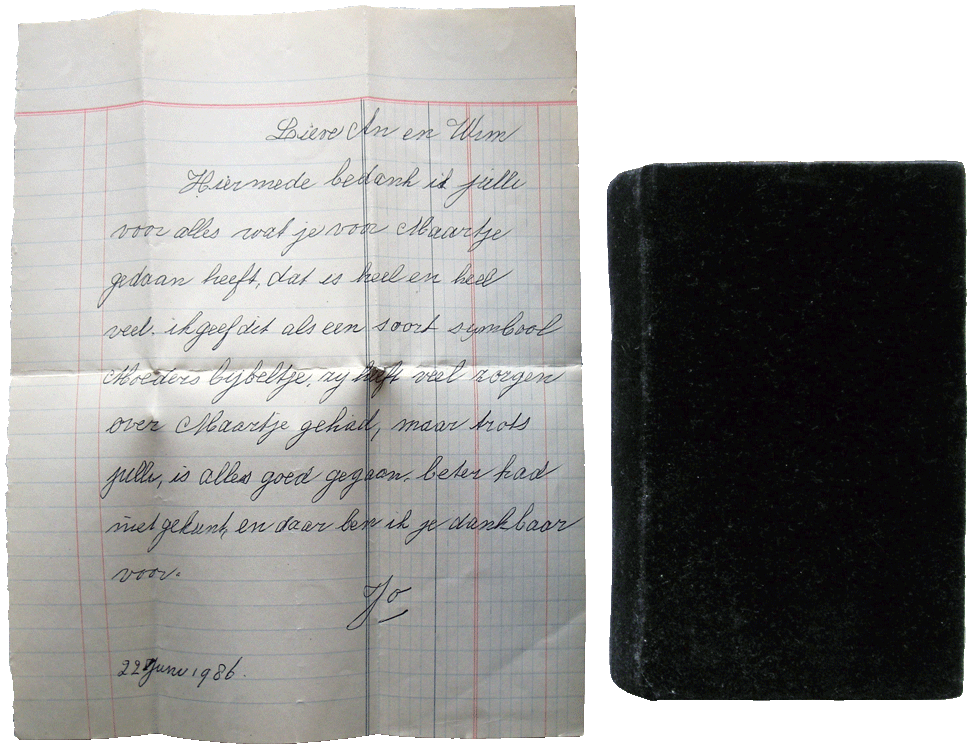 Lieve An en Wim
Hiermede bedank ik jullie
voor alles wat je voor Maartje
gedaan heeft, dat is heel en heel
veel. ik geef dit als een soort symbool
Moeders bijbeltje, zy heeft veel zorgen
over Maartje gehad, maar trots
jullie, is alles goed gegaan. beter had
niet gekunt, en daar ben ik je dankbaar
voor.
Jo
22 Juni 1986.